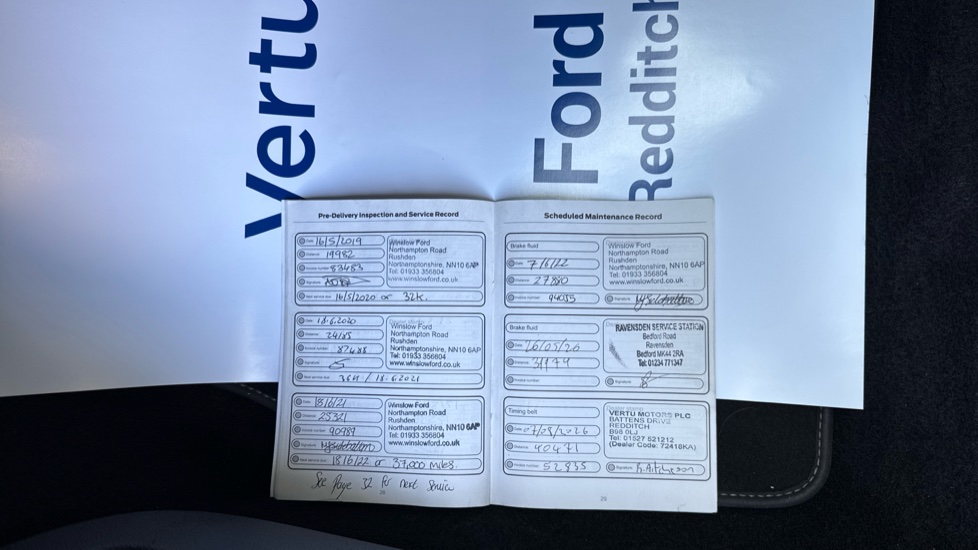 Vertu
Ford
Redditch
Pre-Delivery Inspection and Service Record
Date 16/5/2019
Distance 19982
Invoice number 83483
Signature
Next service due 16/5/2020 or 32k.
Winslow Ford
Northampton Road
Rushden
Northamptonshire, NN10 6AP
Tel: 01933 356804
www.winslowford.co.uk
Date 18.6.2020
Distance 24185
Invoice number 87488
Signature
Next service due 36K / 18.6.2021
Winslow Ford
Northampton Road
Rushden
Northamptonshire, NN10 6AP
Tel: 01933 356804
www.winslowford.co.uk
Date 18/6/21
Distance 25321
Invoice number 90989
Signature
Next service due 18/6/22 or 37,000 miles.
Winslow Ford
Northampton Road
Rushden
Northamptonshire, NN10 6AP
Tel: 01933 356804
www.winslowford.co.uk
See Page 32 for next Service
28
Scheduled Maintenance Record
Brake fluid
Date 7/6/22
Distance 27880
Invoice number 94055
Winslow Ford
Northampton Road
Rushden
Northamptonshire, NN10 6AP
Tel: 01933 356804
www.winslowford.co.uk
Signature
Brake fluid
Date
Distance
Invoice number
RAVENSDEN SERVICE STATION
Bedford Road
Ravensden
Bedford MK44 2RA
Tel: 01234 771347
Signature
Timing belt
Date
Distance 40471
Invoice number 52835
VERTU MOTORS PLC
BATTENS DRIVE
REDDITCH
B98 0LJ
Tel: 01527 521212
(Dealer Code: 72418KA)
Signature
29